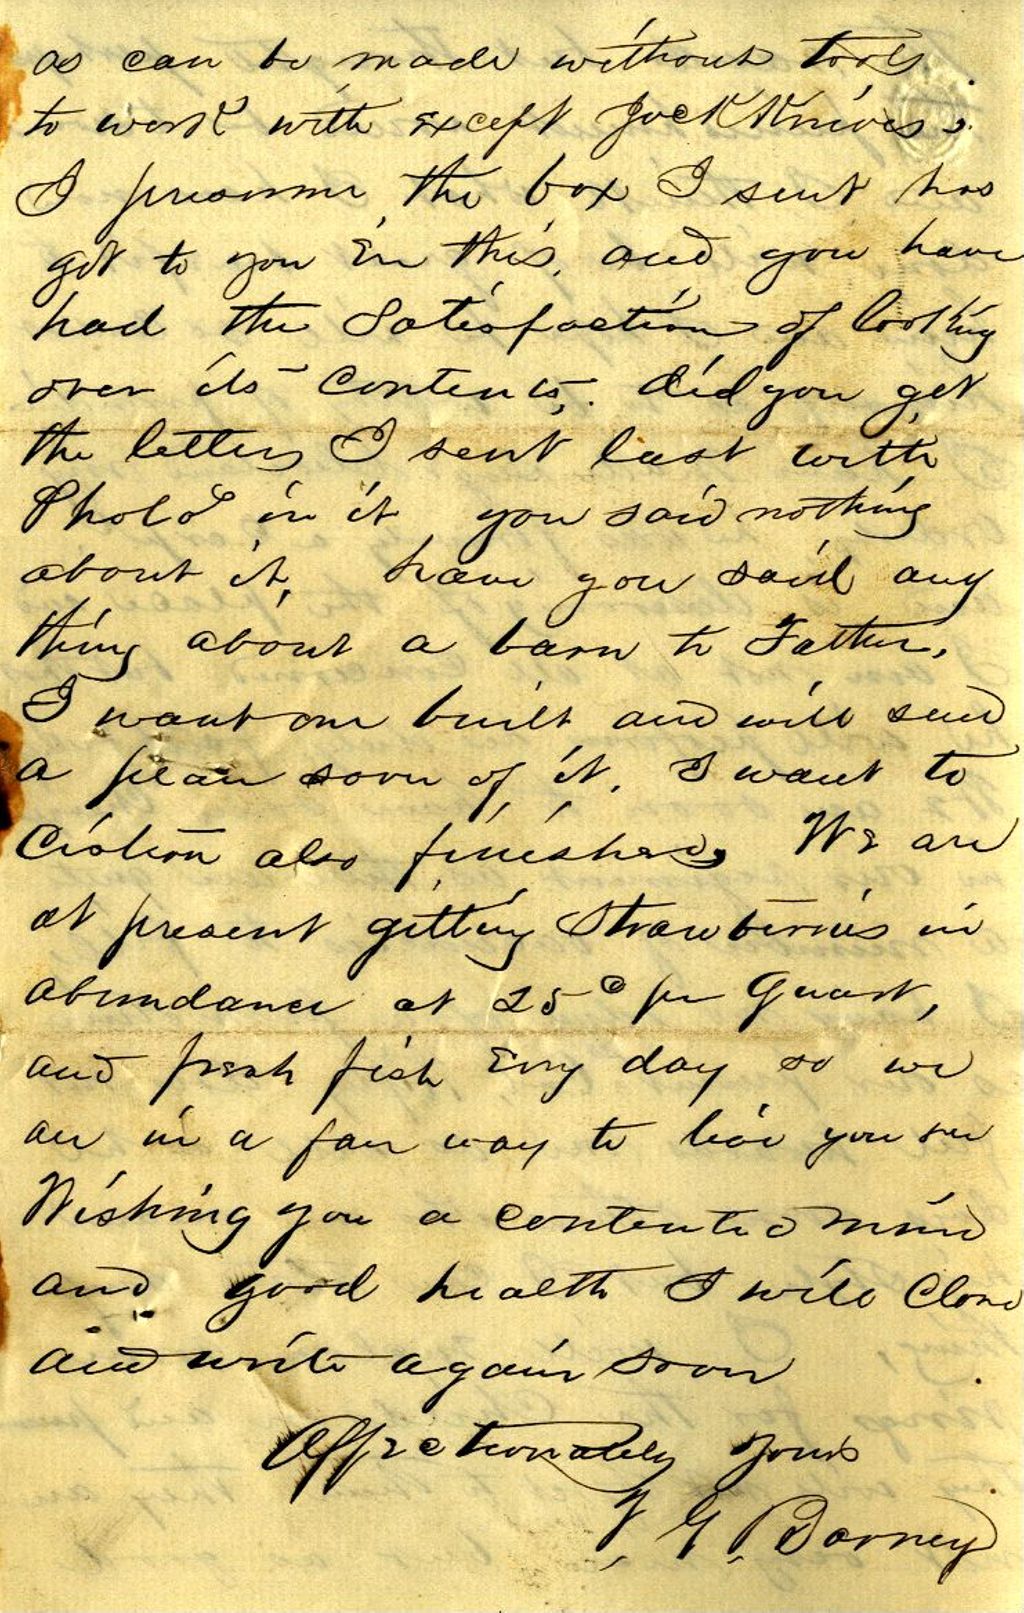 as can be made without tools
to work with except Jack Knives.
I presume the box I sent has
got to you in this, and you have
had the Satisfaction of looking
over its contents. did you get
the letters I sent last with
Photo in it you said nothing
about it, have you said any
thing about a barn to Father.
I want one built and will send
a plan soon of it. I want to
Cistern also finished. We are
at present getting Strawberries in
abundance at 25c per Quart,
and fresh fish Evry day so we
are in a fair way to live you see
Wishing you a contented mind
and good health I will Close
and write again soon
Affectionately yours
V. G. Barney